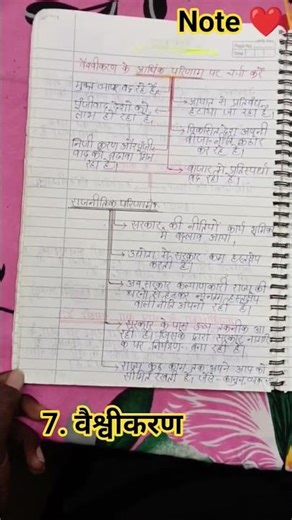 Note ❤️
वैश्वीकरण के आर्थिक परिणाम पर चर्चा करें
मुक्त व्यापार बढ़ रहे हैं,
पूंजीवाद देशों को
लाभ हो रहा है,
निजी करण और पूंजी
वाद को बढ़ावा मिल
रहा है।
आयात से प्रतिबंध
हटाया जा रहा है।
विकसित देश अपनी
वीजा नीति कठोर
कर रहे हैं।
बाजार में प्रतिस्पर्धा
बढ़ रहा है।
राजनीतिक परिणाम
सरकार की नीतियों कार्य भूमिका
में बदलाव आया,
उद्योग में सरकार कम हस्तक्षेप
करती है।
अब सरकार कल्याणकारी राज्य की
हटकर न्यूनतम हस्तक्षेप
वाली नीति अपना रही है।
सरकार के पास उच्च तकनीक आ
रही है। जिसके द्वारा सरकार नागरि
क पर नियंत्रण बना रही है।
राज्य कुछ काम तक अपने आप को
सीमित रखता है। जैसे- कानून व्यव-
7. वैश्वीकरण